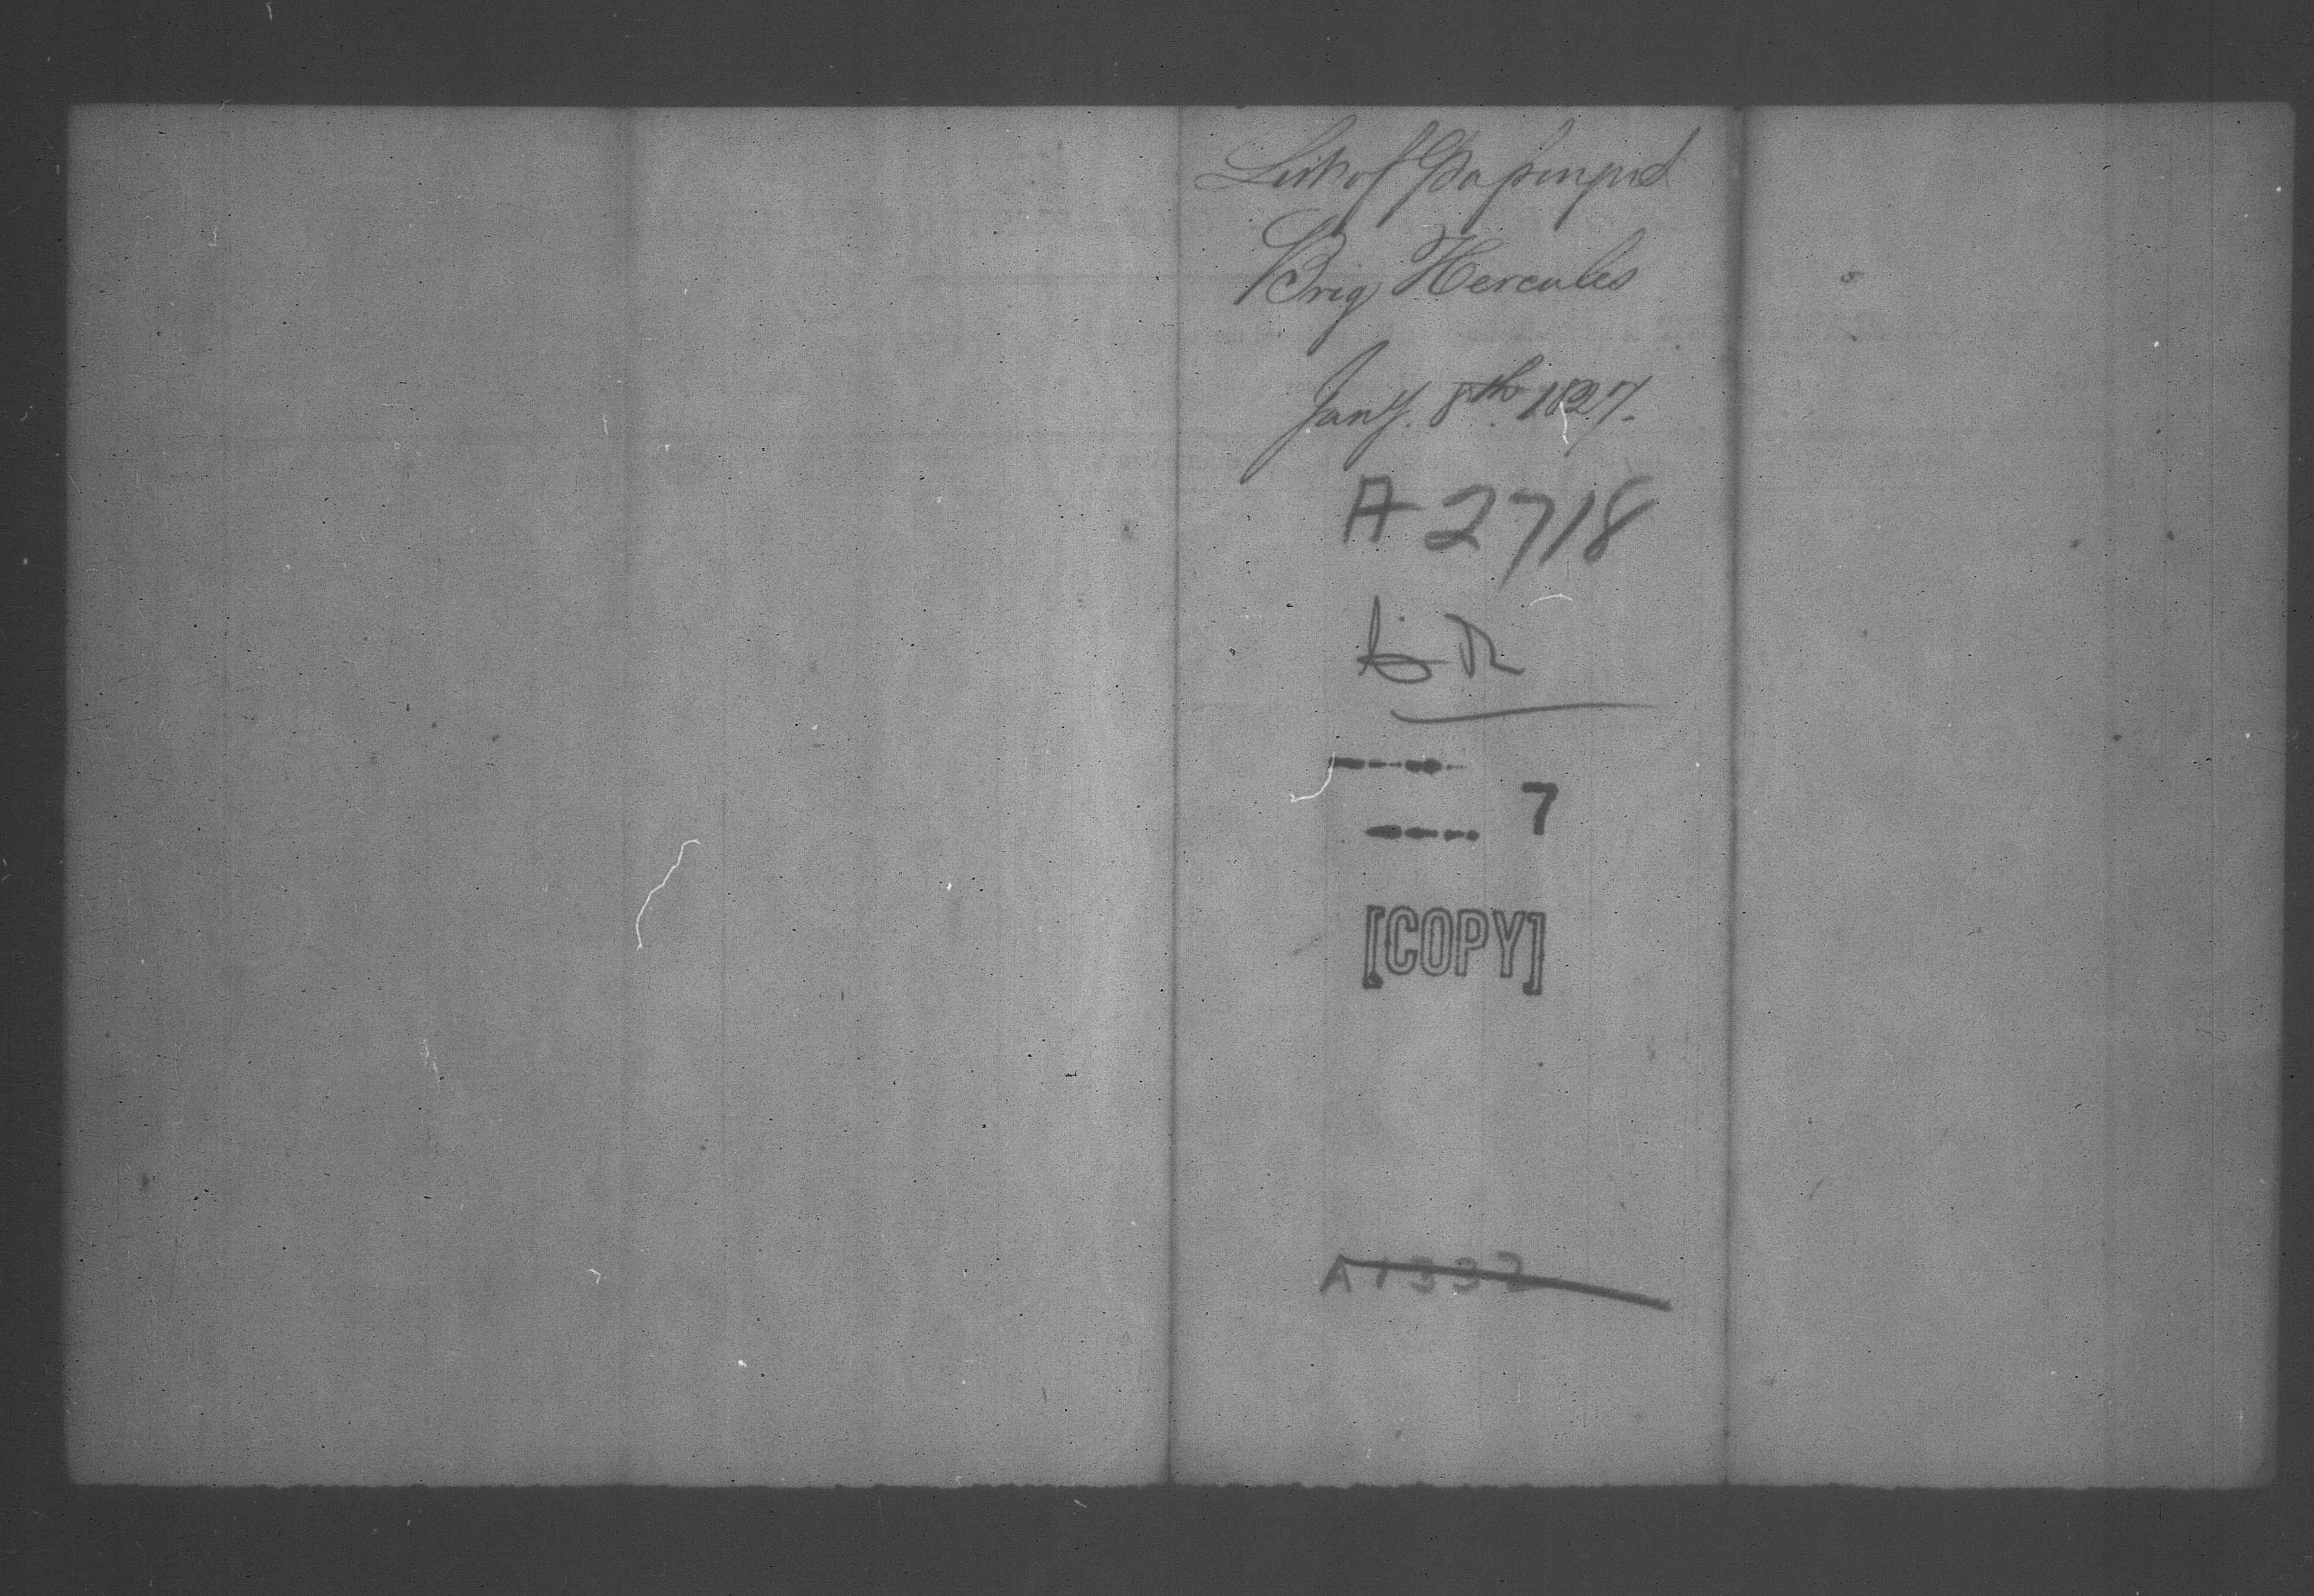 List of Passengers
Brig Hercules
Jany. 8th 1827.
A 2718
7
[COPY]
A 1332